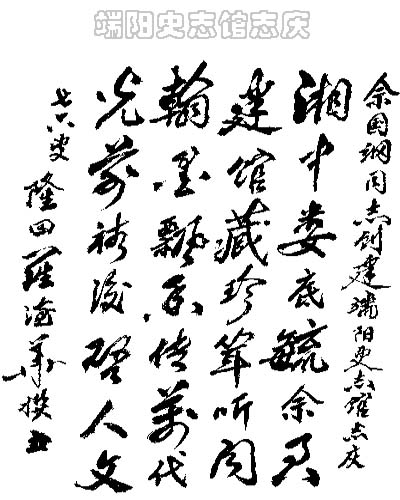 端阳史志馆志庆
余国纲同志创建端阳史志馆志庆
湘中娄底毓余君
建馆藏珍耸听闻
翰墨飘香传万代
光前裕后启人文
七六叟 隆回羅海 撰书